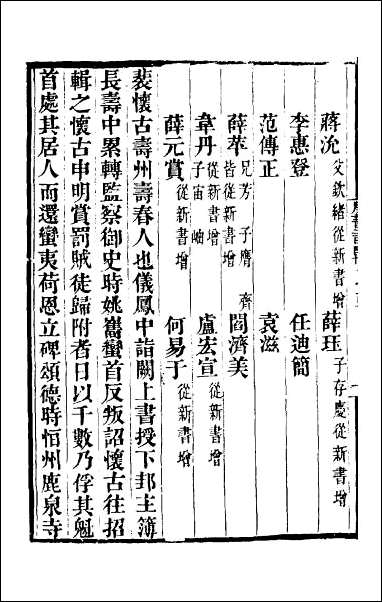 蔣沇 父欽緒從新書增 薛珏 子存慶從新書增
李惠登 任迪簡
范傳正 袁滋
薛苹 兄芳 子膺 齊 皆從新書增 閻濟美
韋丹 子宙 岫 從新書增 盧宏宣 從新書增
薛元賞 從新書增 何易于 從新書增
裴懷古壽州壽春人也儀鳳中詣闕上書授下邽主簿
長壽中累轉監察御史時姚巂蠻首反叛詔懷古往招
輯之懷古申明賞罰賊徒歸附者日以千數乃俘其魁
首處其居人而還蠻夷荷恩立碑頌德時恒州鹿泉寺